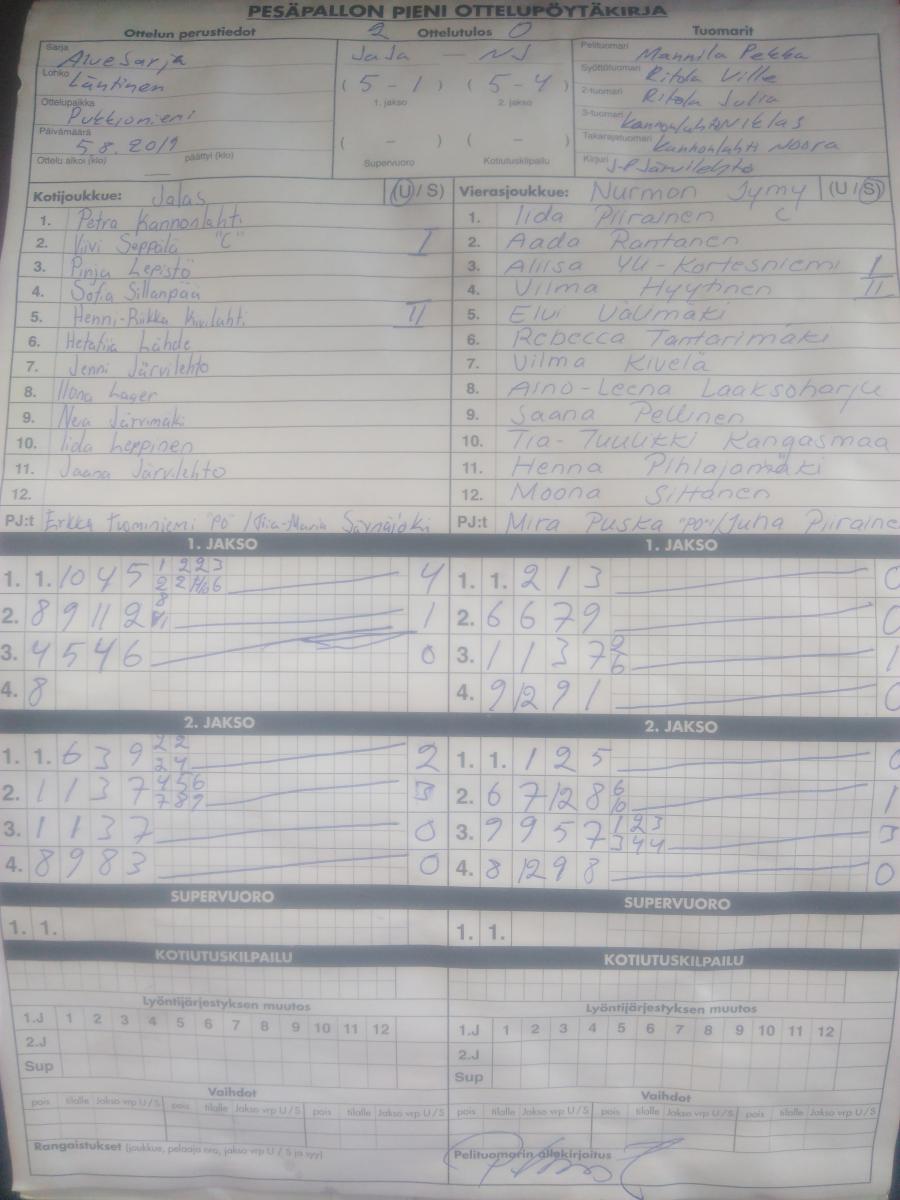 PESÄPALLON PIENI OTTELUPÖYTÄKIRJA
Ottelun perustiedot
2 Ottelutulos 0
Tuomarit
Sarja AlueSarja
Lohko Läntinen
Ottelupaikka Pukkiniemi
Päivämäärä 5.8.2019
Ottelu alkoi (klo) päättyi (klo)
JaJa — NJ
( 5 - 1 ) ( 5 - 4 )
1. jakso 2. jakso
( - ) ( - )
Supervuoro Kotiutuskilpailu
Pelituomari Mannila Pekka
Syöttötuomari Ritola Ville
2-tuomari Ritola Julia
3-tuomari Kannonlahti Niklas
Takarajatuomari Kannonlahti Noora
Kirjuri J-P Järvilehto
Kotijoukkue: Jalas (U / S)
1. Petra Kannonlahti
2. Viivi Seppälä "C" I
3. Pinja Lepistö
4. Sofia Sillanpää
5. Henni-Riikka Kivilahti II
6. Lähde
7. Jenni Järvilehto
8. Ilona Lager
9. Nea Järvimäki
10. Iida Leppinen
11. Jaana Järvilehto
12.
PJ:t Erkka Tuominiemi "PO" / Tiia-Maria
Vierasjoukkue: Nurmon Jymy (U / S)
1. Iida Piirainen C
2. Aada Rantanen
3. Aliisa Yli-Kortesniemi I
4. Vilma Hyytinen II
5. Elvi Välimäki
6. Rebecca Tantarimäki
7. Vilma Kivelä
8. Aino-Leena Laaksoharju
9. Saana Pellinen
10. Tia-Tuulikki Kangasmaa
11. Henna Pihlajamäki
12. Moona Siltanen
PJ:t Mira Puska "PO" / Juha Piiraine
1. JAKSO
1. 1. 10 4 5 1 2 2 3 4
2. 8 9 11 2 1
3. 4 5 4 6 0
4. 8
1. JAKSO
1. 1. 2 1 3 0
2. 6 6 7 9 0
3. 1 1 3 7 2 6 1
4. 9 12 9 1 0
2. JAKSO
1. 1. 6 3 9 2 2 2 4 2
2. 1 1 3 7 4 5 6 7 8 9 3
3. 1 1 3 7 0
4. 8 9 8 3 0
2. JAKSO
1. 1. 1 2 5 0
2. 6 7 12 8 6 10 1
3. 9 9 5 7 1 2 3 3 4 4 3
4. 8 12 9 8 0
SUPERVUORO
1. 1.
SUPERVUORO
1. 1.
KOTIUTUSKILPAILU
KOTIUTUSKILPAILU
Lyöntijärjestyksen muutos
1.J 1 2 3 4 5 6 7 8 9 10 11 12
2.J
Sup
Lyöntijärjestyksen muutos
1.J 1 2 3 4 5 6 7 8 9 10 11 12
2.J
Sup
Vaihdot
pois tilalle Jakso vrp U / S pois tilalle Jakso vrp U / S pois tilalle Jakso vrp U / S
Vaihdot
pois tilalle Jakso vrp U / S pois tilalle Jakso vrp U / S pois tilalle Jakso vrp U / S
Rangaistukset (joukkue, pelaaja nro, jakso vrp U / S ja syy)
Pelituomarin allekirjoitus